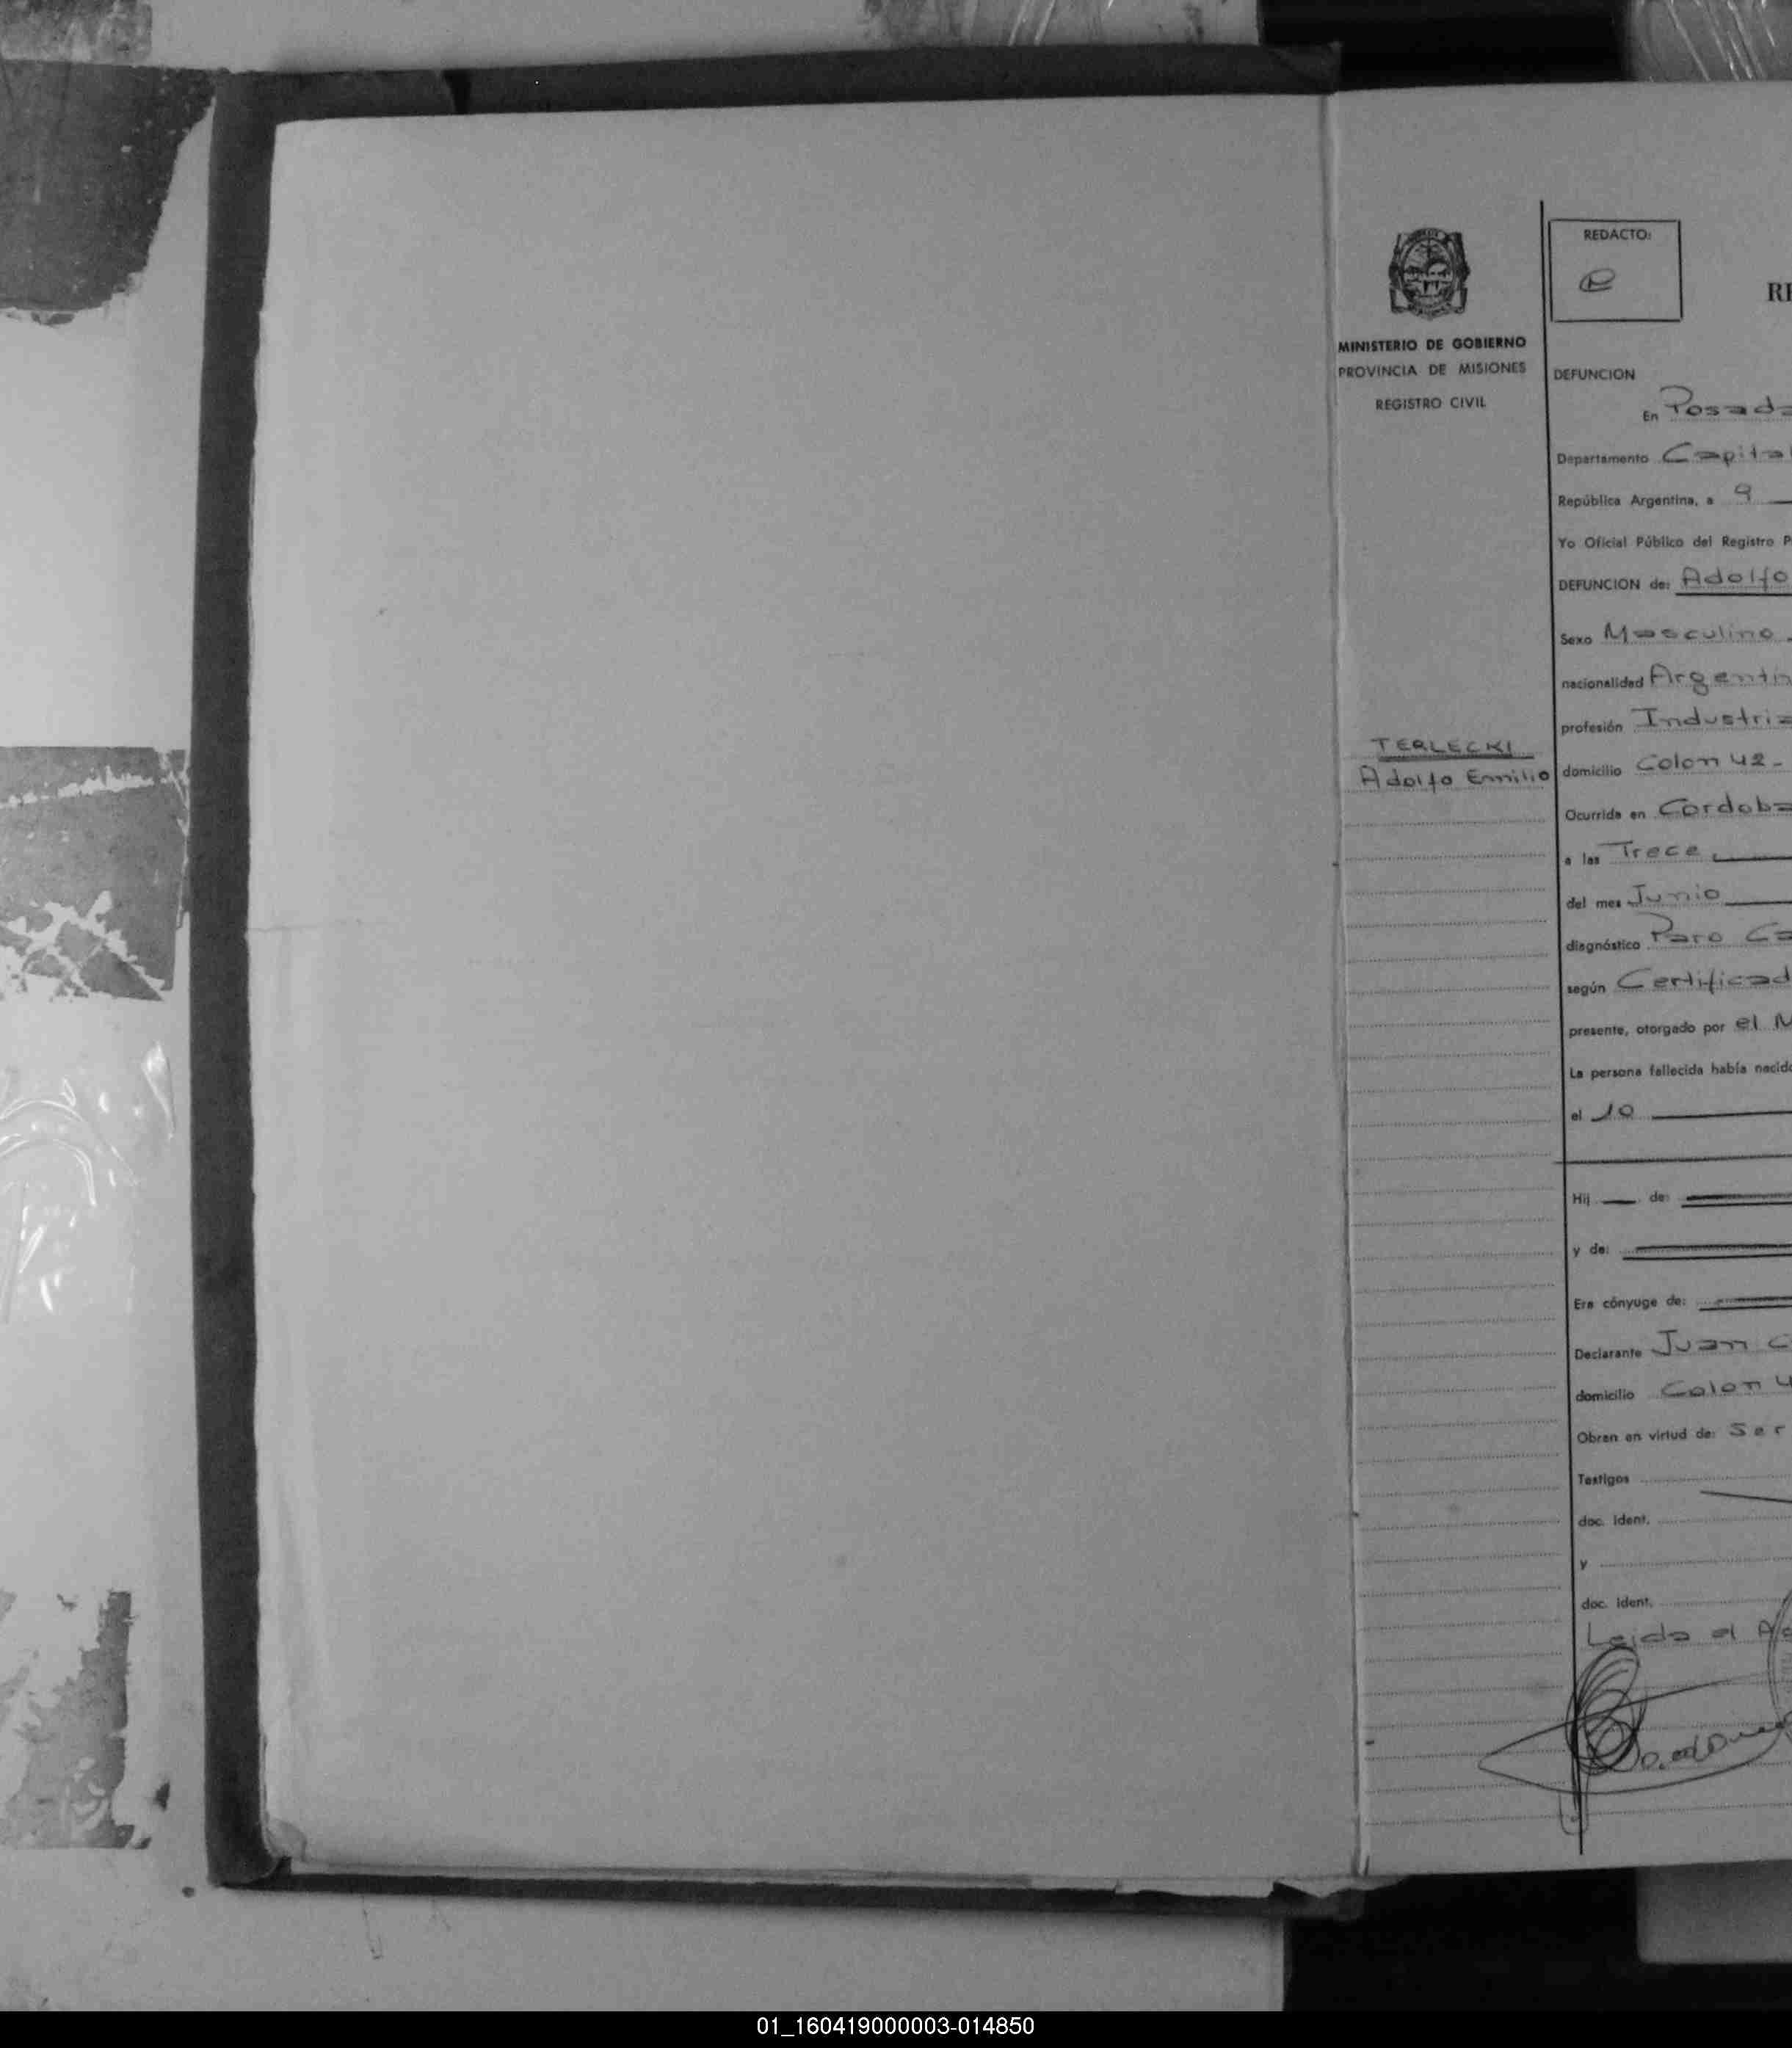 REDACTO:
RE
MINISTERIO DE GOBIERNO
PROVINCIA DE MISIONES
REGISTRO CIVIL
TERLECKI
Adolfo Emilio
DEFUNCION
En Posada
Departamento Capital
República Argentina, a 9
Yo Oficial Público del Registro P
DEFUNCION de: Adolfo
Sexo Masculino
nacionalidad Argentin
profesión Industria
domicilio Colon 42-
Ocurrida en Cordoba
a las Trece
del mes Junio
diagnóstico Paro Ca
según Certificad
presente, otorgado por el M
La persona fallecida había nacido
el 10
Hij de:
y de:
Era cónyuge de:
Declarante Juan C
domicilio Colon 4
Obran en virtud de: Ser
Testigos
doc. ident.
y
doc. ident.
Leida el Ac
01_160419000003-014850